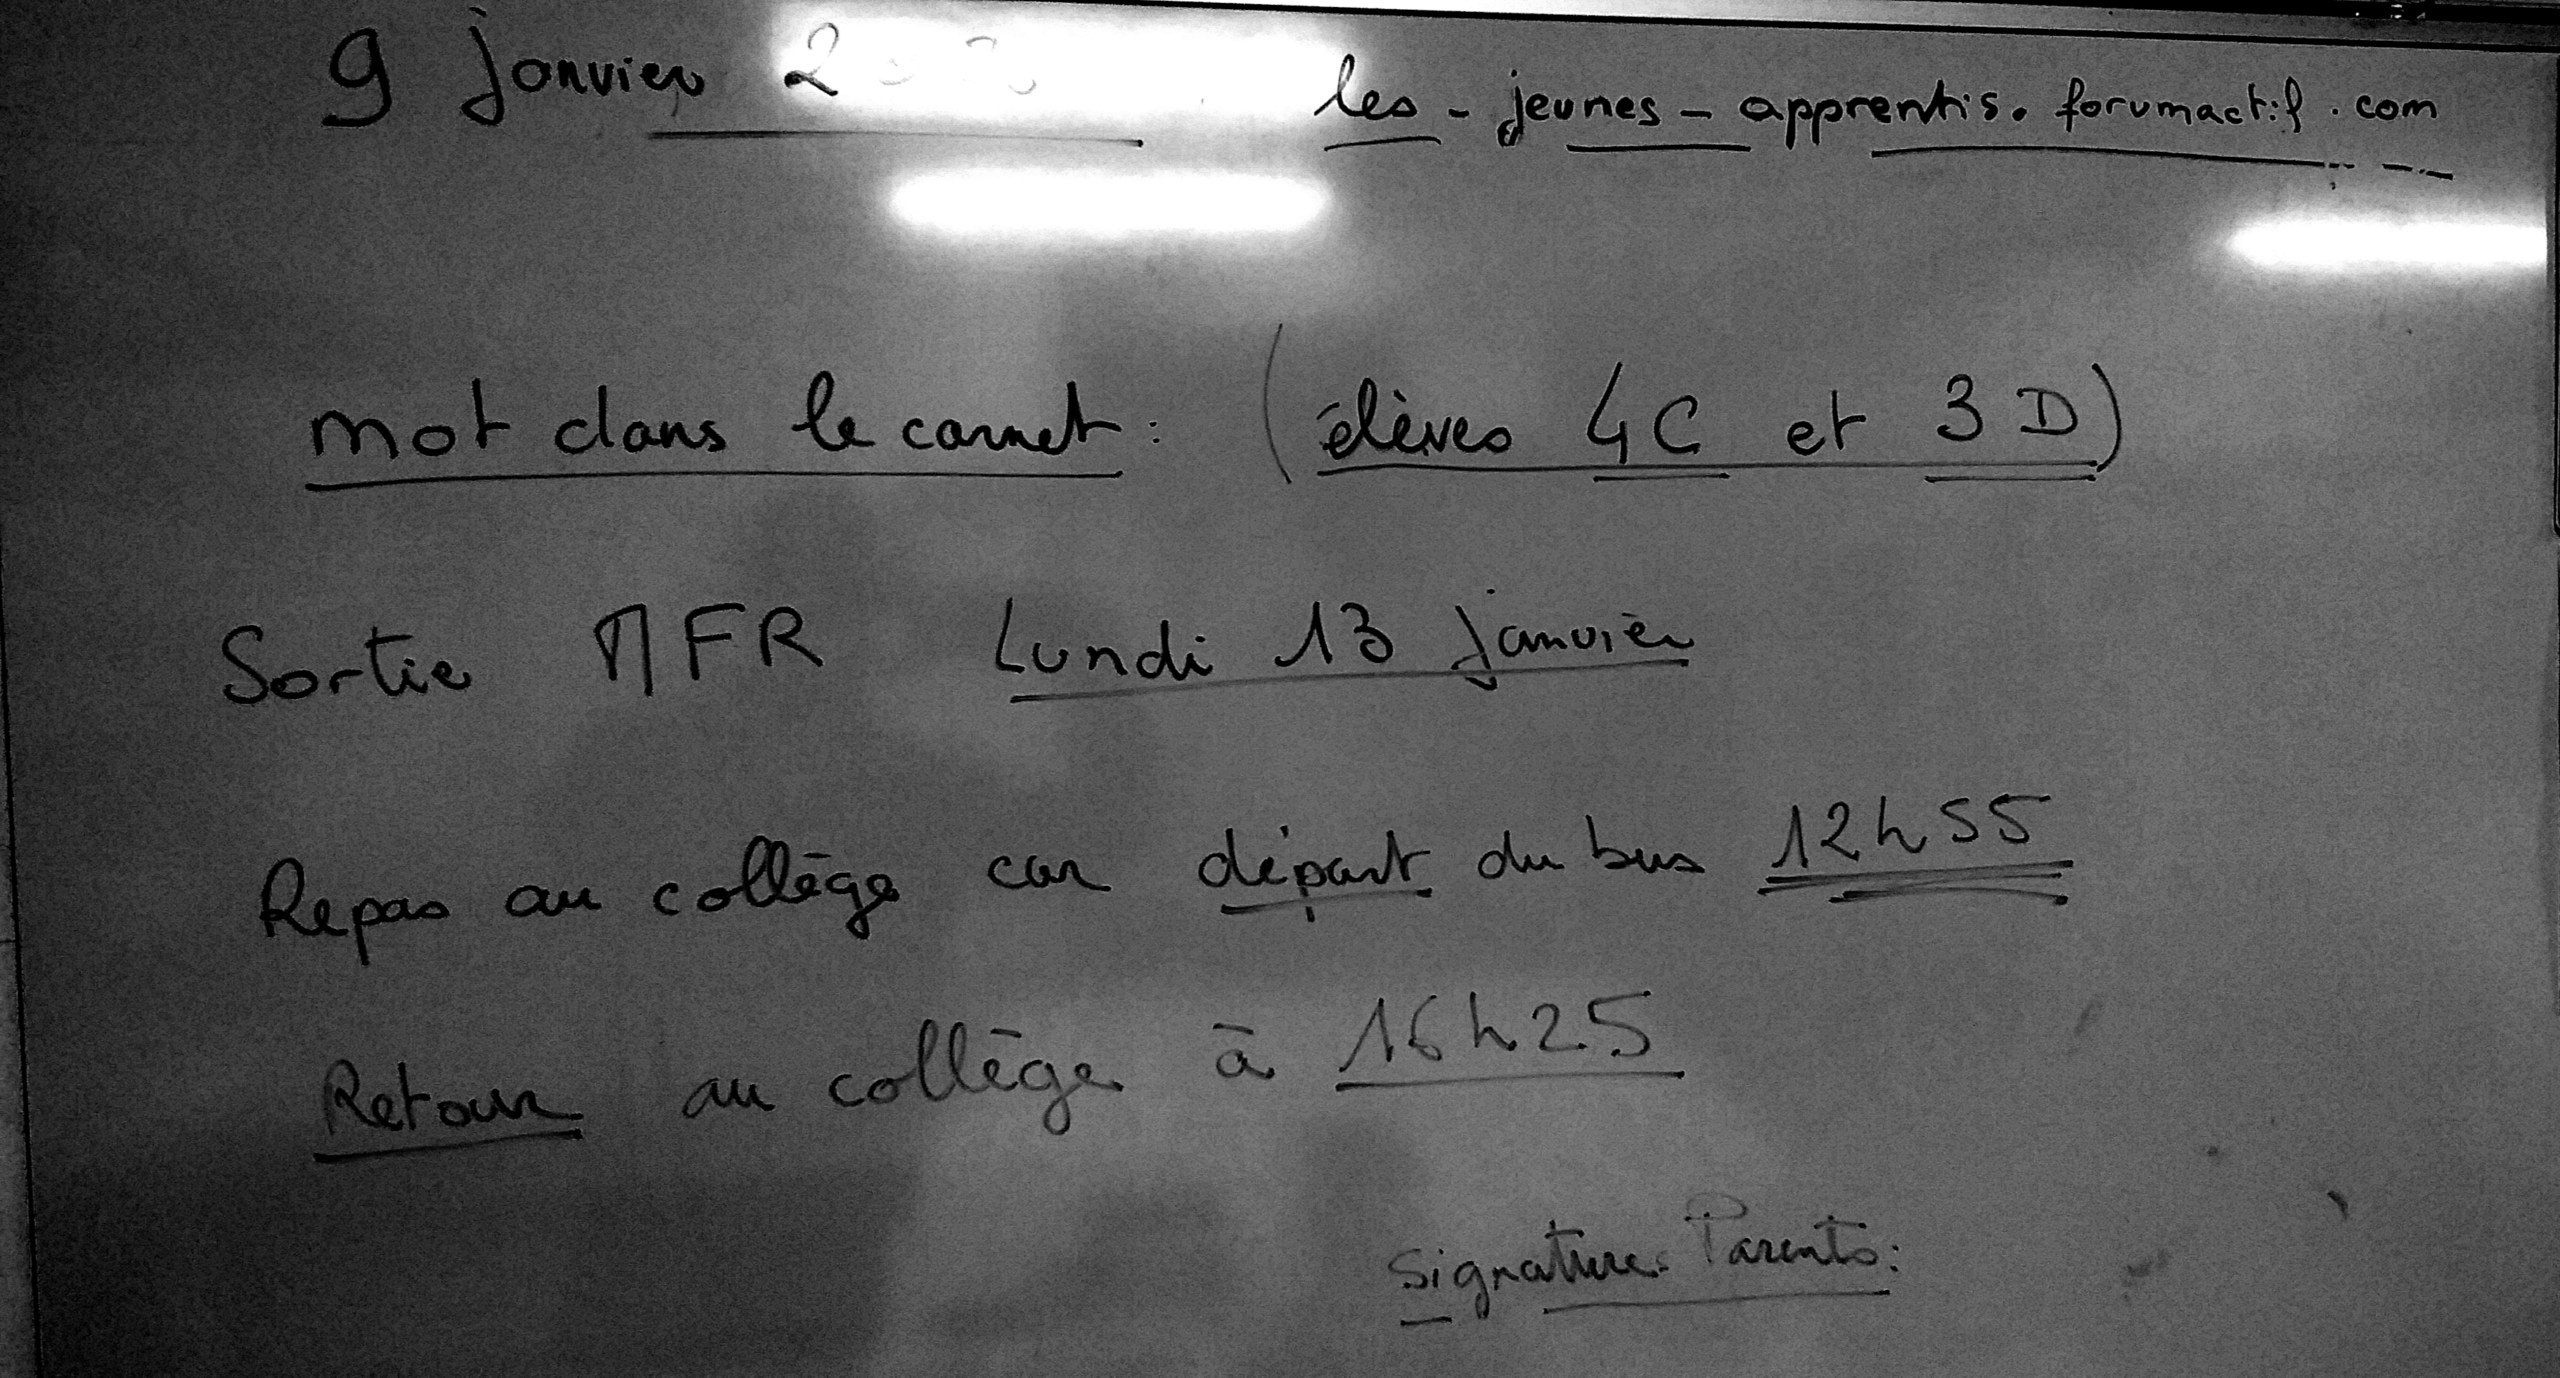 9 janvier
les-jeunes-apprentis.forumactif.com
mot dans le carnet : (élèves 4C et 3D)
Sortie MFR Lundi 13 janvier
Repas au collège car départ du bus 12h55
Retour au collège à 16h25
Signature Parents :